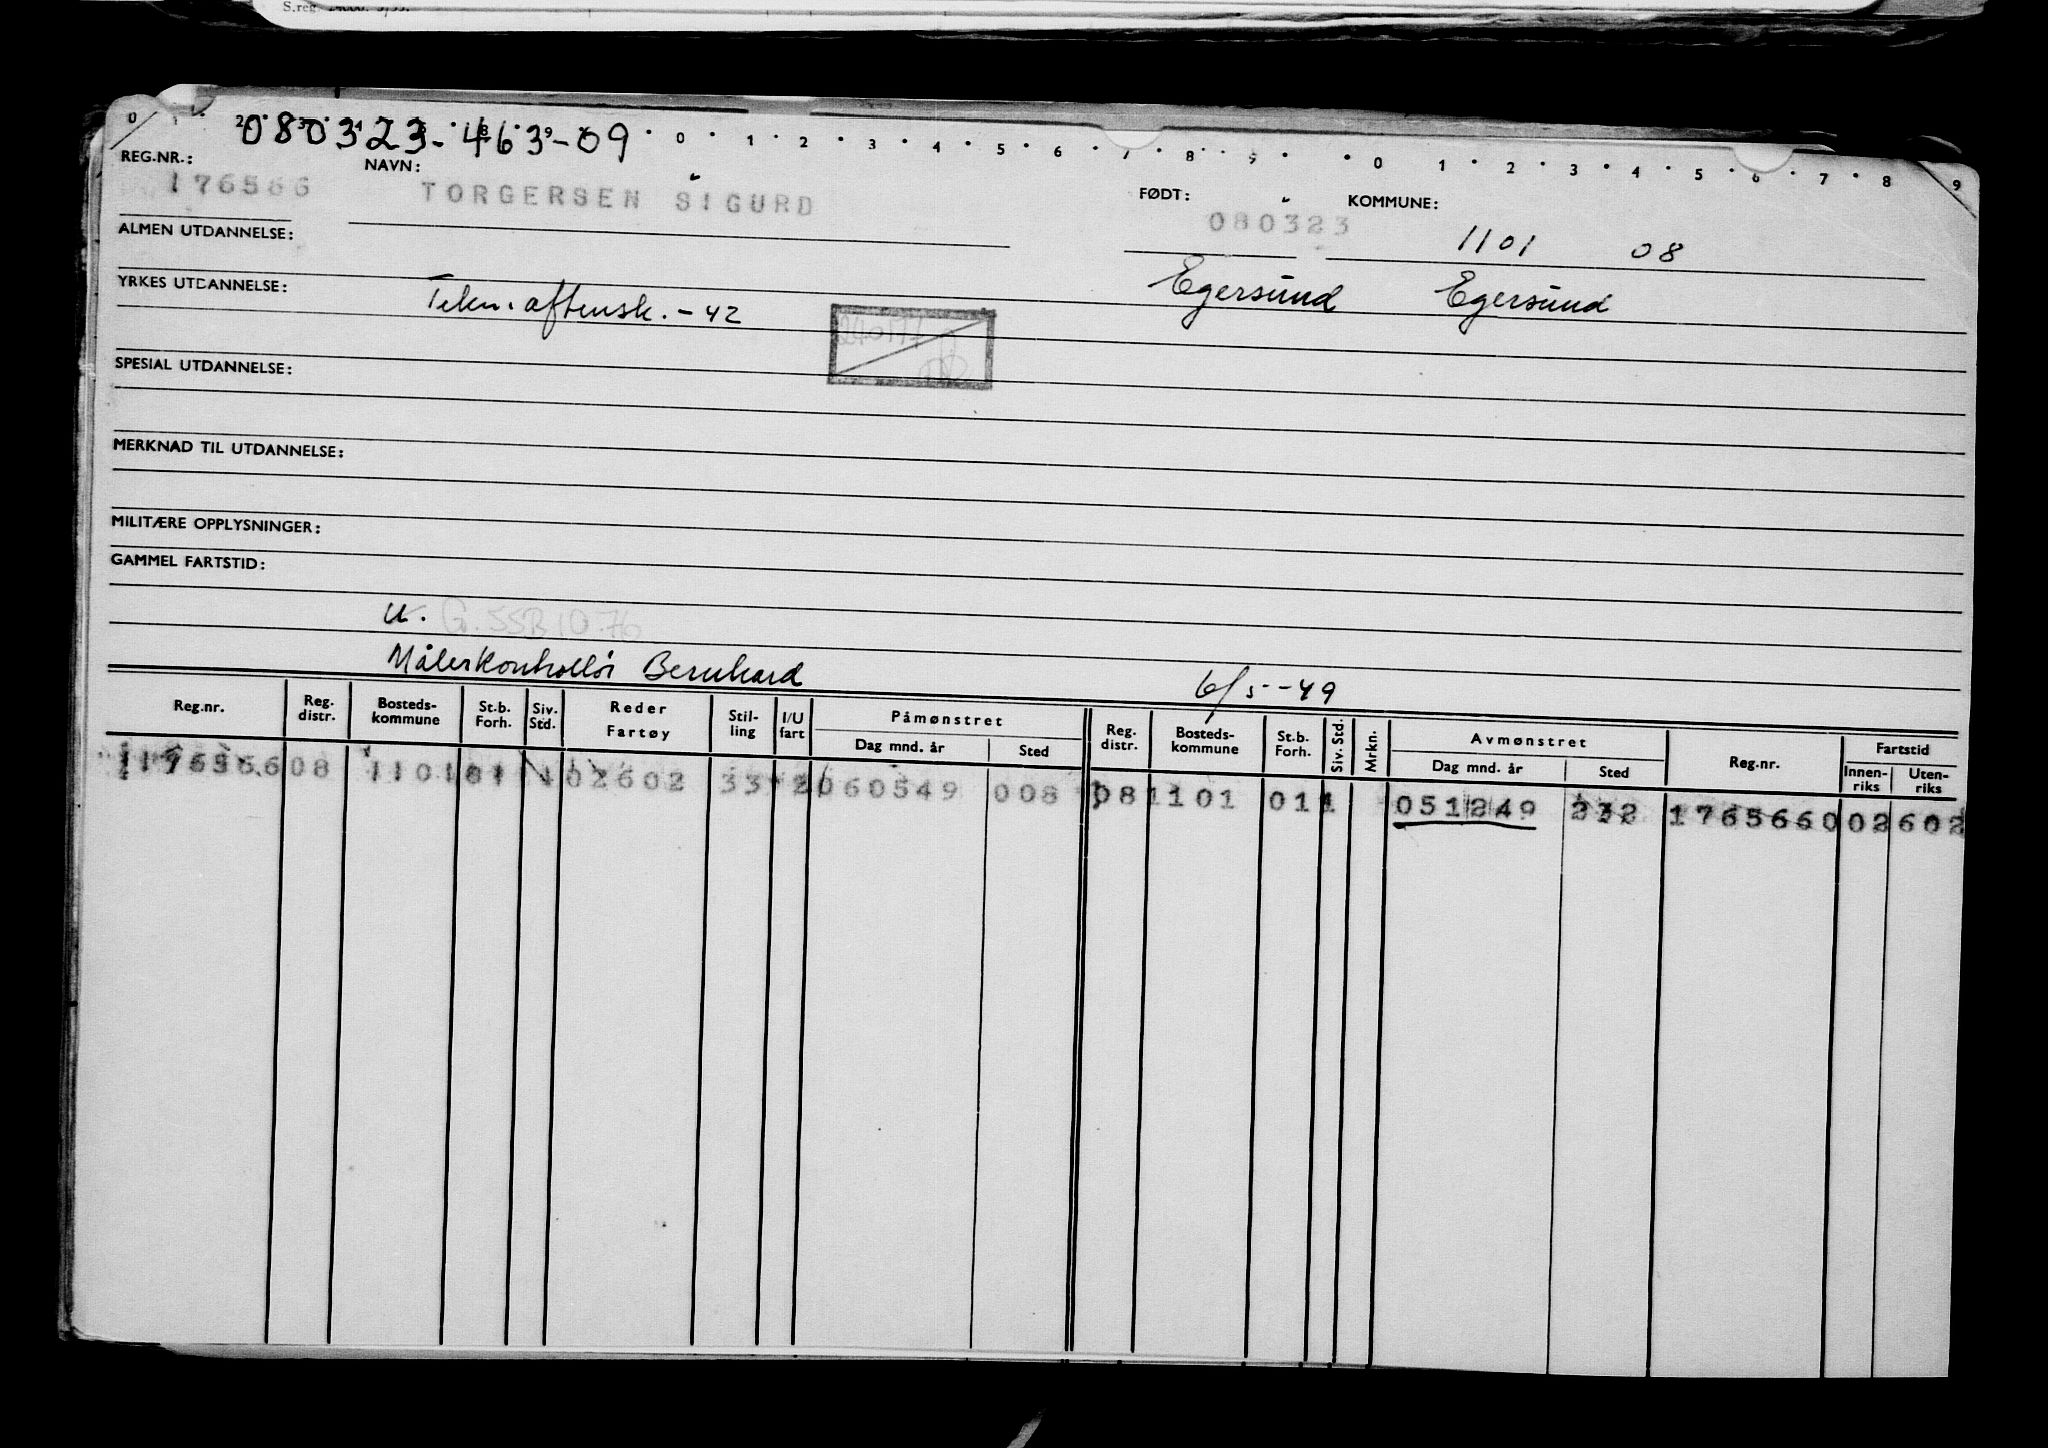 S.reg. 24000. 3/55.
080323-463-09
0 1 2 3 4 5 6 7 8 9 0 1 2 3 4 5 6 7 8 9
REG.NR.: NAVN: FØDT: KOMMUNE:
176566 TORGERSEN SIGURD 080323 1101 08
ALMEN UTDANNELSE:
Egersund Egersund
YRKES UTDANNELSE: Tekn. aftensk. - 42
SPESIAL UTDANNELSE:
MERKNAD TIL UTDANNELSE:
MILITÆRE OPPLYSNINGER:
GAMMEL FARTSTID:
u. G.
Målerkontrollør Bernhard 6/5-49
Reg.nr. Reg. distr. Bosteds-kommune St.b. Forh. Siv. Std. Reder Fartøy Stil-ling I/U fart Påmønstret Dag mnd. år Sted Reg. distr. Bosteds-kommune St.b. Forh. Siv. Std. Mrkn. Avmønstret Dag mnd. år Sted Reg.nr. Fartstid Innen-riks Uten-riks
1176566 08 1101 01 1 02602 33 2 060549 008 08 1101 01 1 051249 232 1765660 02602